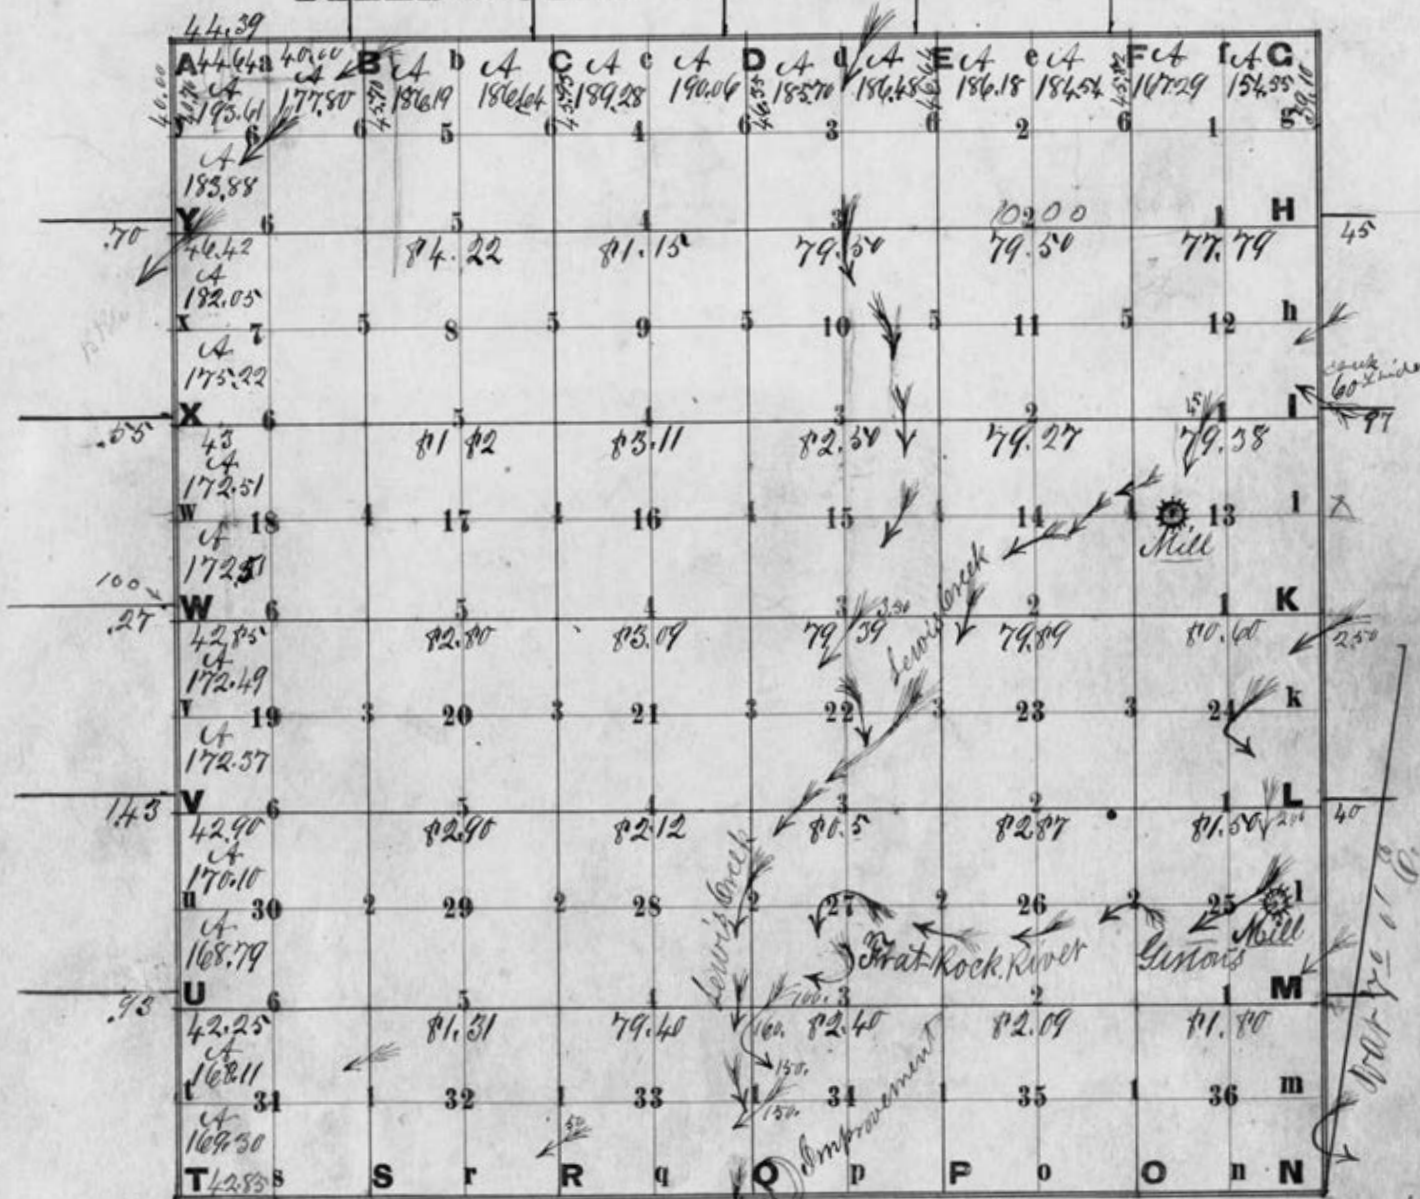 44.39
A 44.64 a 40.00 B A b A C A c A D A d A E A e A F A f A G
40.00 A 193.61 A 177.80 186.19 186.64 189.28 190.06 46.35 185.70 186.48 186.18 184.54 167.29 154.55 39.10
y 6 6 5 6 4 6 3 6 2 6 1 g
A
183.88
Y 6 5 4 3 2 1 H
.70 46.42 84.22 81.15 79.50 79.50 77.79 45
A
182.05
x 7 5 8 5 9 5 10 5 11 5 12 h
A
175.22
60
X 6 5 4 3 2 45 1 I 97
.55 43 81 82 83.11 82.50 79.27 79.38
A
172.51
w 18 4 17 4 16 4 15 4 14 4 13 l
A Mill
172.51
100
W 6 5 4 3 3.50 2 1 K
.27 42.85 82.80 83.09 79 39 79.89 80.60 2.50
A Lewis Creek
172.49
v 19 3 20 3 21 3 22 3 23 3 24 k
A
172.57
V 6 5 4 3 2 1 L
1.43 42.90 82.90 82.12 80.5 82.87 81.50 200 40
A Lewis Creek
170.10
u 30 2 29 2 28 2 27 2 26 2 25 l
A Mill
168.79 Flat Rock River
U 6 5 4 100. 3 2 1 M
.93 42.25 81.31 79.40 160. 82.40 82.09 81.80
A
168.11 150.
t 31 1 32 1 33 1 150. 34 1 35 1 36 m
A 50
169.30 Improvement
T 42.85 s S r R q Q p P o O n N